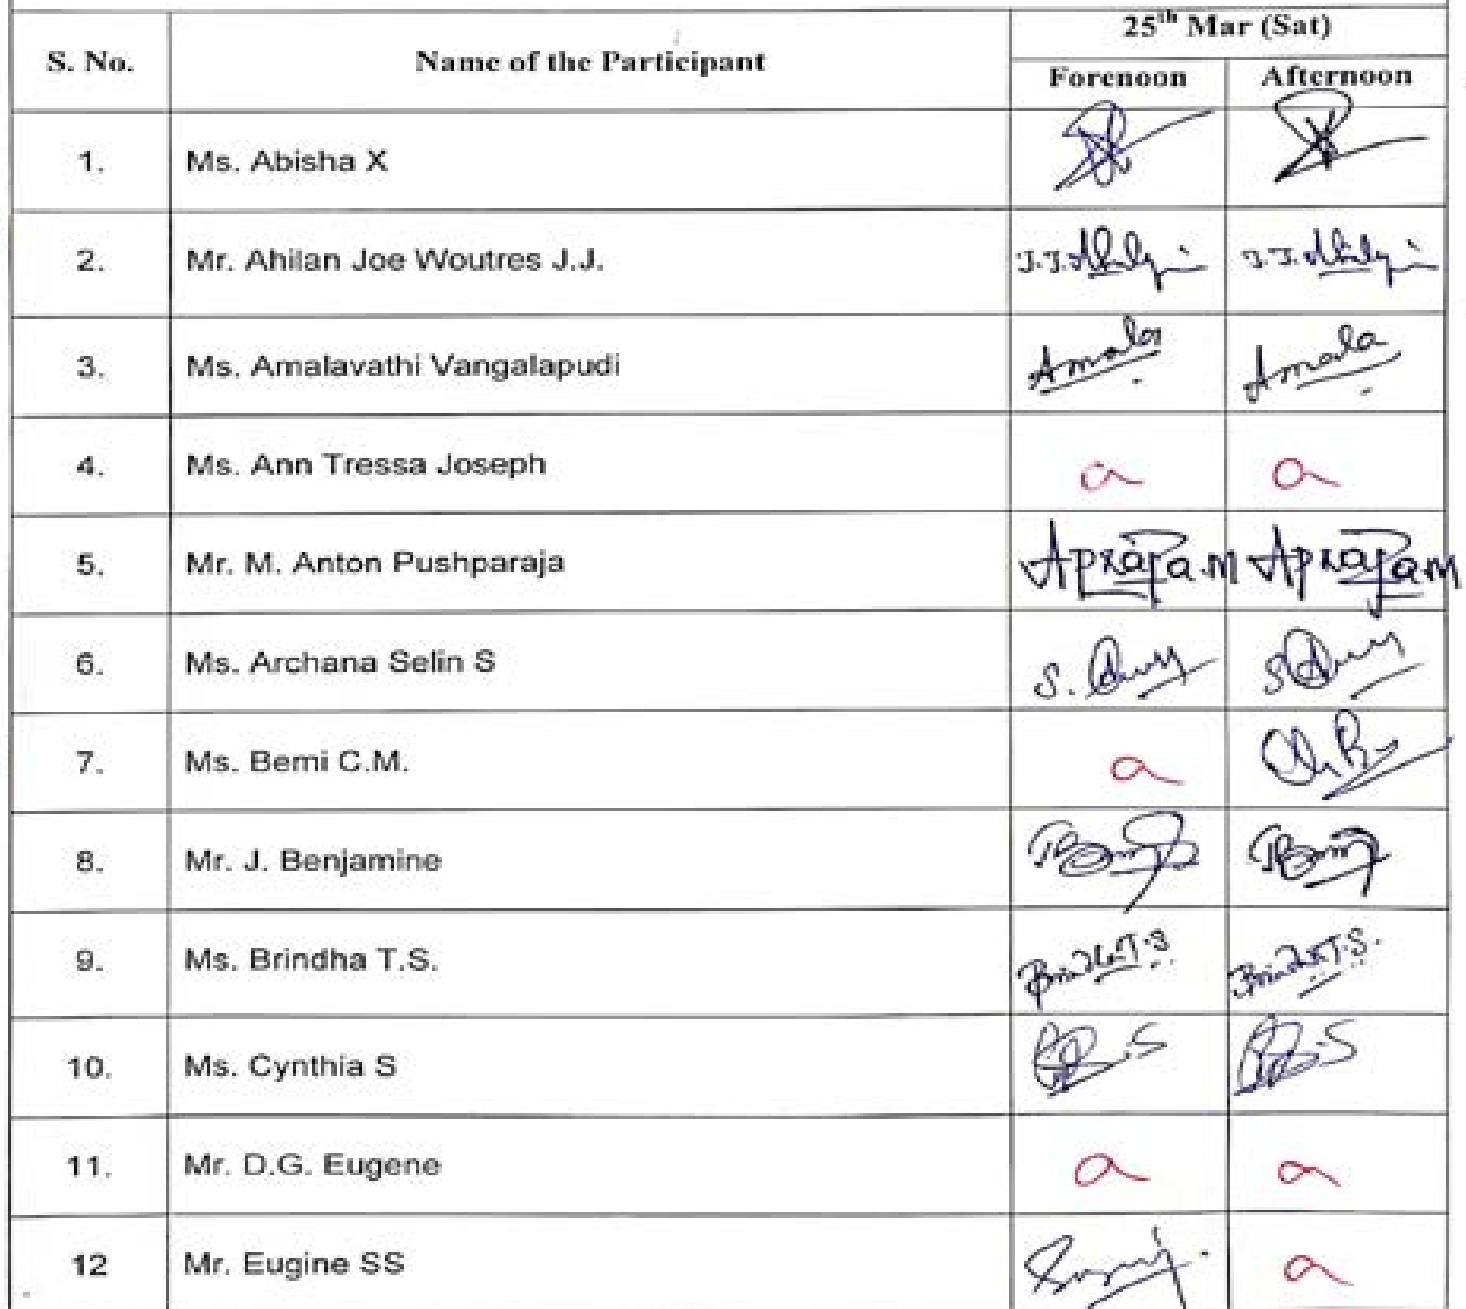 25th Mar (Sat)
S. No. Name of the Participant Forenoon Afternoon
1. Ms. Abisha X
2. Mr. Ahilan Joe Woutres J.J. J.J. Ahilan J.J. Ahilan
3. Ms. Amalavathi Vangalapudi Amala Amala
4. Ms. Ann Tressa Joseph a a
5. Mr. M. Anton Pushparaja
6. Ms. Archana Selin S S. S
7. Ms. Bemi C.M. a
8. Mr. J. Benjamine
9. Ms. Brindha T.S. Brindha T.S Brindha T.S.
10. Ms. Cynthia S S S
11. Mr. D.G. Eugene a a
12 Mr. Eugine SS a